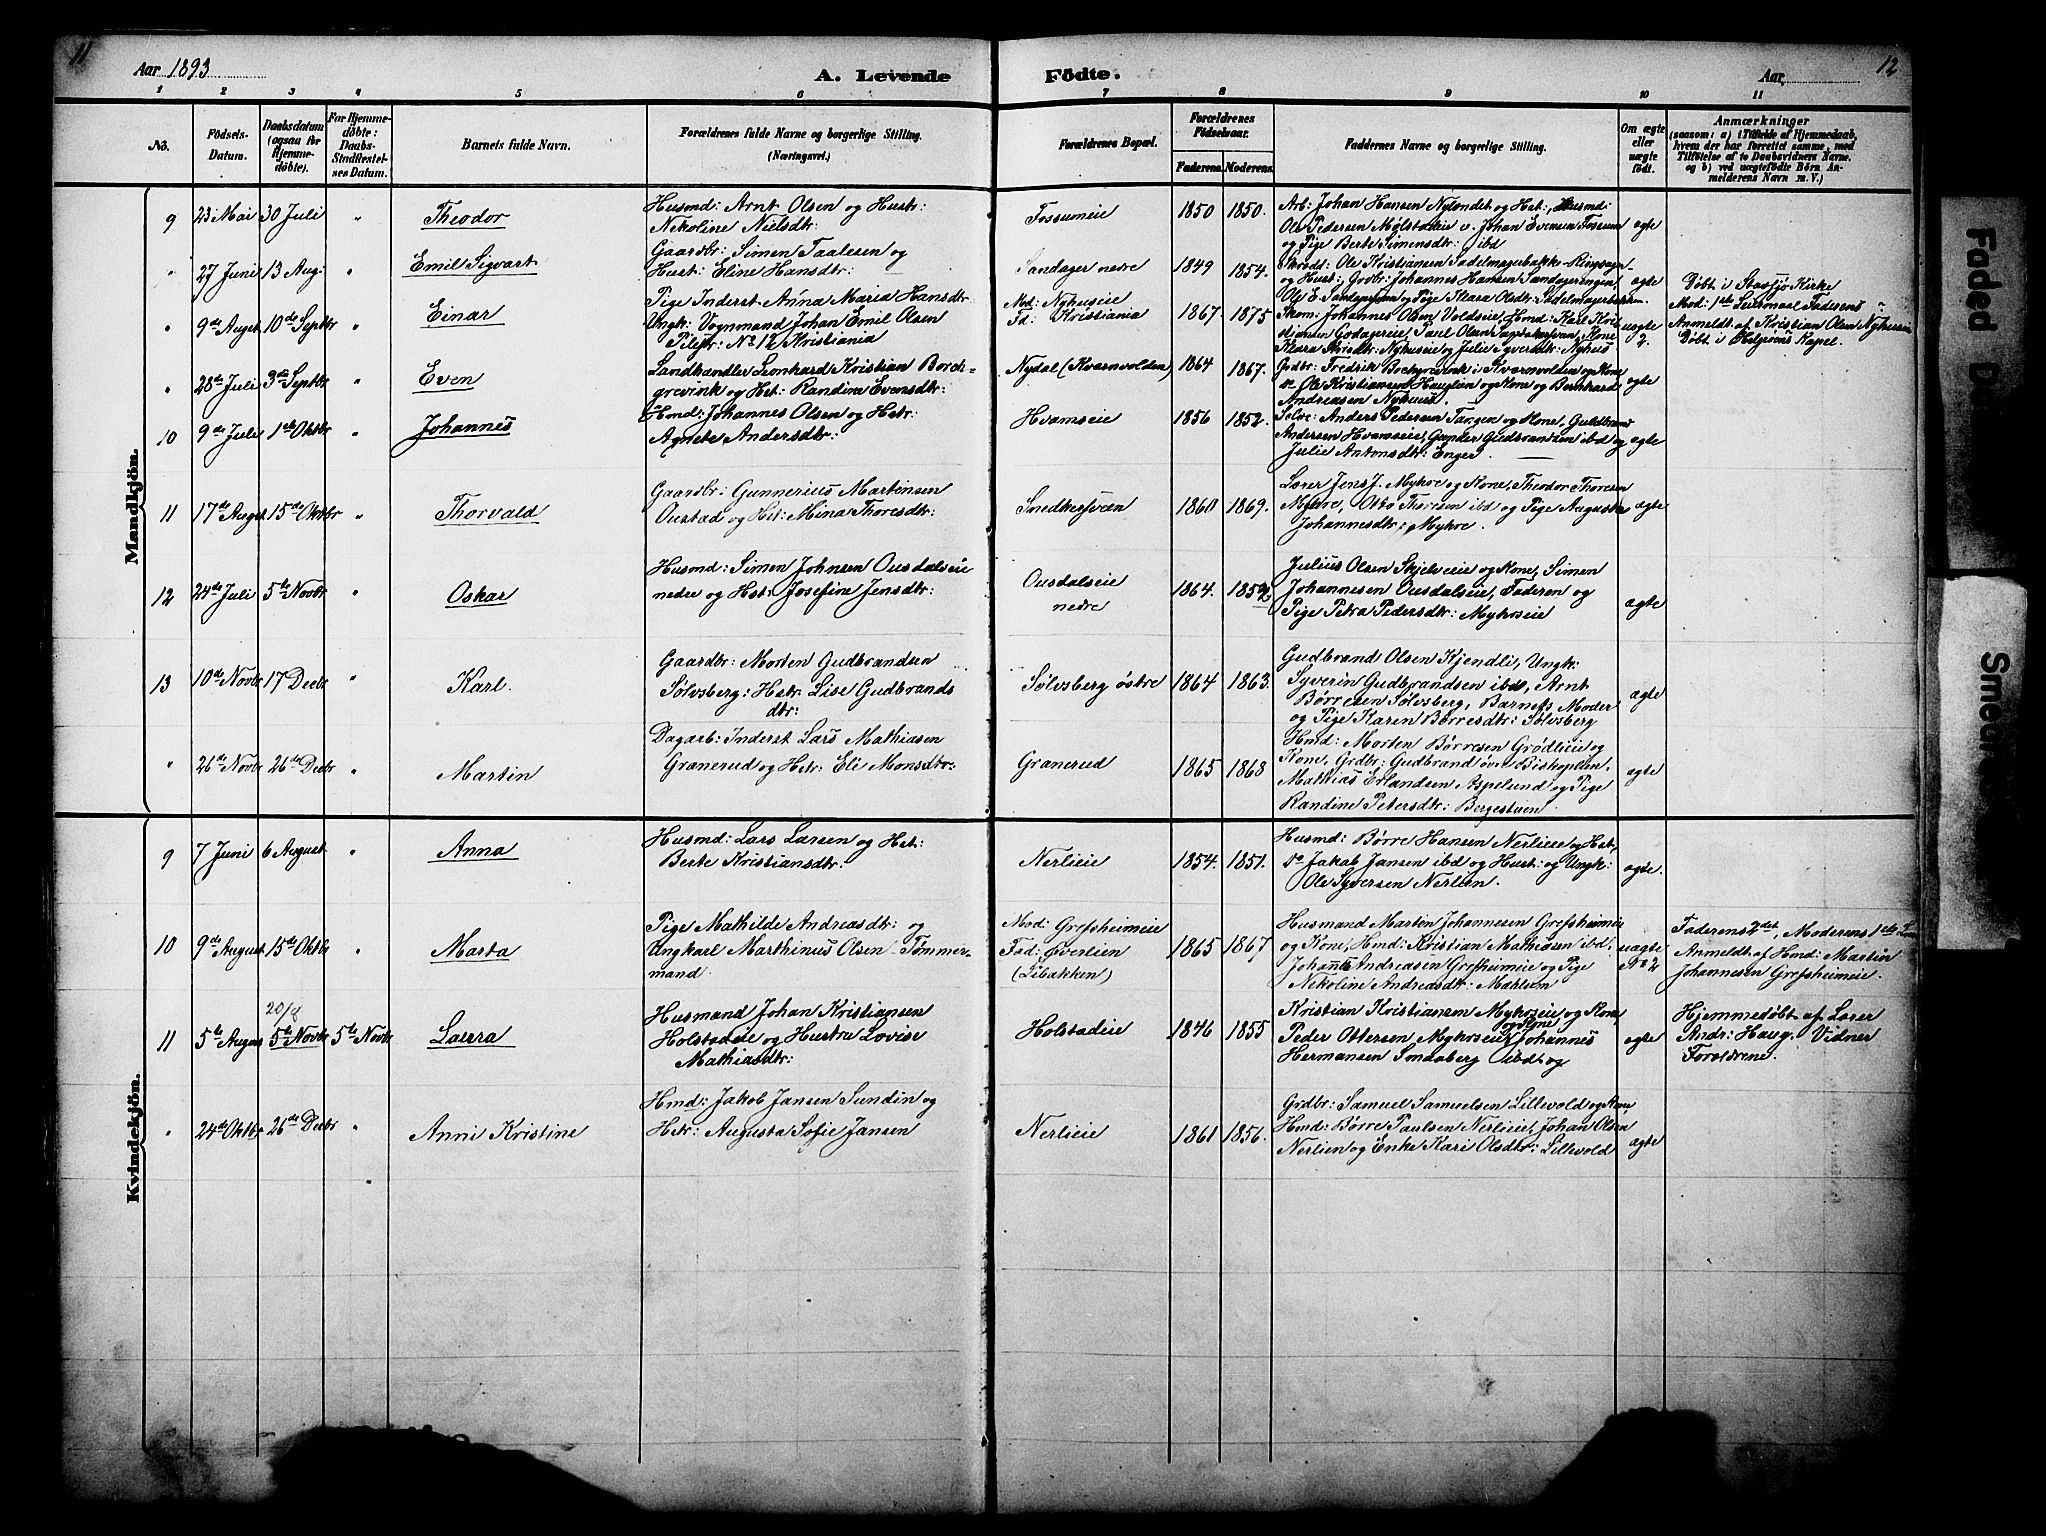 11
Aar 1893
A. Levende
Födte.
Aar
12
1 2 3 4 5 6 7 8 9 10 11
No.
Födsels-Datum.
Daabsdatum (ogsaa for Hjemme-döbte).
For Hjemme-döbte: Daabs-Stadfæstel-ses Datum.
Barnets fulde Navn.
Forældrenes fulde Navne og borgerlige Stilling.
(Næringsvei.)
Forældrenes Bopæl.
Forældrenes Födselsaar.
Faderens. Moderens.
Faddernes Navne og borgerlige Stilling.
Om ægte eller uægte födt.
Anmærkninger
(saasom: a) i Tilfælde af Hjemmedaab, hvem der har forrettet samme, med Tilföielse af to Daabsvidners Navne, og b) ved uægtefödte Börn An-melderens Navn m. V.)
Mandkjön.
9 23 Mai 30 Juli " Theodor
Husmd: Arnt Olsen og Hustr:
Nekoline Nielsdtr:
Fossumeie 1850 1850.
Arb: Johan Hansen Nylændet og Hst:, Husmd:
Ole Pedersen Mølstadeie v. Johan Evensen Fossum
og Pige Berte Simensdtr: ibd
ægte
" 27 Juni 13 Aug. " Emil Sigvart
Gaardbr: Simen Taalesen og
Hust: Eline Hansdtr:
Sandager nedre 1849 1854.
Skrædd: Ole Kristiansen Sadelmagerbakk. Ringsagn-
og Hust: Grdbr: Johannes Hansen Sandageringen,
ægte
Døbt i Stavsjø Kirke
" 9de Augst 10de Septbr " Einar
Pige Inderst Anna Maria Hansdtr
Ungk: Vognmand Johan Emil Olsen
Pilestr: No 12 Kristiania
Mod: Nyhuseie
Fd: Kristiania
1867. 1875
Skom: Johannes Olsen Voldseie, Hmd: Karl Kris
uægte
2.
Mod: 1ste Leiermaal Faderens
Anmeldt af Kristian Olsen Nyhuseie
Døbt i Helgøens Kapel.
" 28de Juli 3die Septbr " Even
Landhandler Leonhard Kristian Borch-
grevink og Hst: Randine Evensdtr:
Nydal (Kvernvolden) 1864 1867.
ægte
Andreasen Nyhus.
10 9de Juli 1ste Oktbr " Johannes
Hmd: Johannes Olsen og Hstr:
Agnete Andersdtr:
Hvamseie 1856 1852.
Selve: Anders Pedersen Tangen og Kone, Guldbrand
Andersen Hvamseie, Gunder Gudbrandsen ibd og
Julie Antonsdtr: Enger.
ægte
11 17de Augst 15de Oktbr " Thorvald
Gaardbr: Gunnerius Martinsen
Oustad og Hst: Mina Thoresdtr:
Snedkersveen 1860 1869.
Lærer Jens J. Myhre og Kone, Theodor Thoresen
Myhre, Otto Thoresen ibd og Pige Augusta
Johannesdtr: Myhre.
ægte
12 24de Juli 5te Novbr " Oskar
Husmd: Simen Johnsen Ousdalseie
nedre og Hstr Josefine Jensdtr:
Ousdalseie
nedre
1864.
Julius Olsen Skjelveie og Kone, Simen
Johannesen Ousdalseie, Faderen og
Pige Petra Pedersdtr: Myhrseie
ægte
13 10de Novbr 17 Decbr " Karl.
Gaardbr: Morten Gudbrandsen
Sølvsberg: Hstr Lise Gudbrands
dtr:
Sølvsberg østre 1864 1863.
Gudbrand Olsen Kjendli, Ungk:
Syverin Gudbrandsen ibd, Arnt
Børresen Sølvsberg, Barnets Moder
og Pige Karen Børresdtr: Sølvsberg
ægte
" 26de Novbr 26de Decbr " Martin
Dagarb: Inderst Lars Mathiasen
Granerud og Hstr: Eli Monsdtr:
Granerud 1865 1868
Hmd: Morten Børresen Grødlieie og
Kone, Grdbr: Gudbrand Bisholien,
Mathias Erlandsen Aspelund og Pige
Randine Petersdtr: Bergestuen
ægte
Kvindekjön.
9 7 Juni 6 August " Anna
Husmd: Lars Larsen og Hst:
Berte Kristiansdtr.
Nerlieie 1854. 1851.
Husmd: Børre Hansen Nerlieie og Hst,
do Jakob Jansen ibd og Hust: og Ungk:
Ole Syversen Nerlien.
ægte.
10 9de August 15de Oktbr " Marta
Pige Mathilde Andreasdtr: og
Ungkarl Marthinus Olsen Tømmer-
mand.
Mod: Grefsheimeie
Fad: Øverlien
(Libakken)
1865 1867
Husmand Marten Johannesen Grefsheimeie
og Kone, Hmd: Kristian Mathiasen ibd,
Johannes Andreasen Grefsheimeie og Pige
Nekoline Andreasdtr: Mælum
uægte
No 2
Faderens 2det, Moderens 1ste L
Anmeldt af Hmd: Martin
Johannesen Grefsheimeie.
20/8
11 5te August 5te Novbr 5te Novbr Laura
Husmand Johan Kristiansen
Holstadeie og Hustru Lovise
Mathiasdtr:
Holstadeie 1846 1855
Kristian Kristiansen Myhrseie og Kone,
Peder Ottersen Myhrseie og Kone Johannes
Hermansen Sundsberg ibd: og
ægte
Hjemmedøbt af Lærer
Andr: Haug. Vidner
Forældrene.
" 24de Oktbr 26de Decbr " Anni Kristine
Hmd: Jakob Jansen Sundin og
Hstr: Augusta Sofie Jansen
Nerlieie 1861 1856.
Grdbr: Samuel Samuelsen Lillevold og Kone,
Hmd: Børre Paulsen Nerlieie, Johan Olsen
Nerlien og Enke Kari Olsdtr: Lillevold
ægte
Faded
Sme